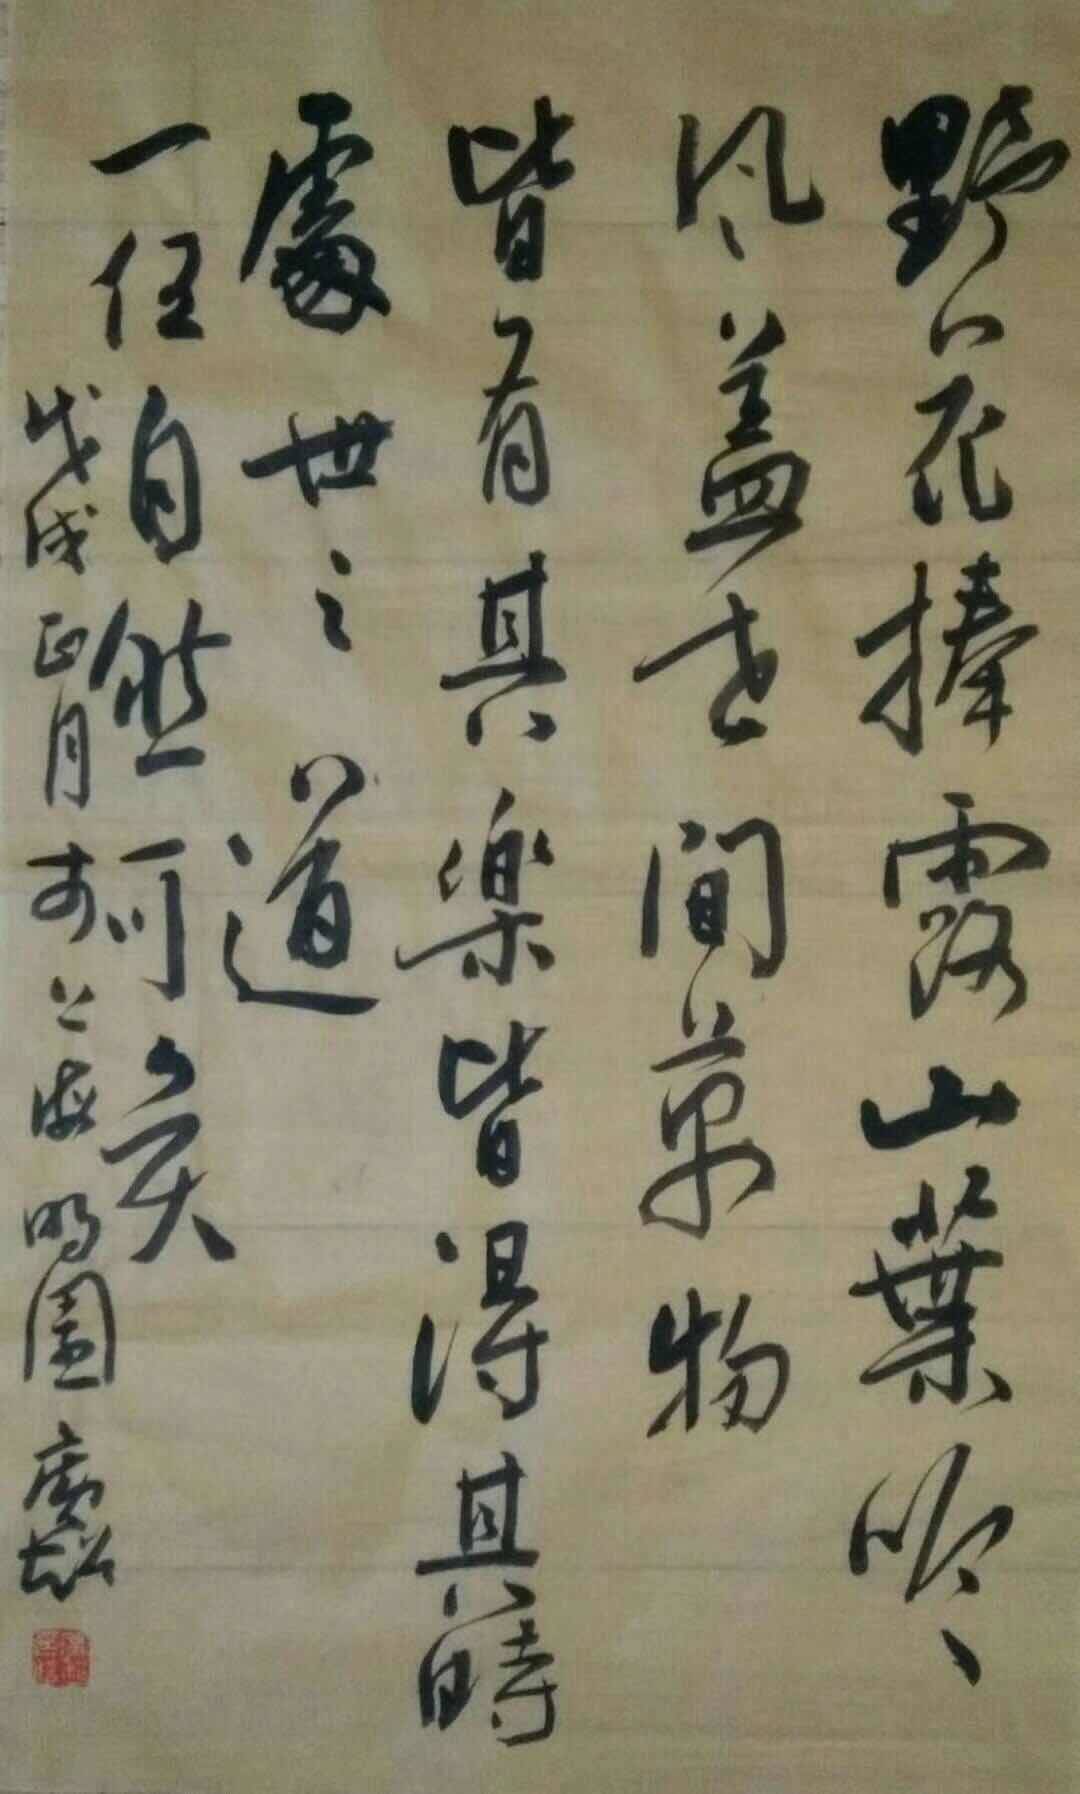 野花捧露山葉吟
风蓋世間萬物
皆有其樂皆得其時
處世之道
一任自然可矣
戊戌正月於上海明園